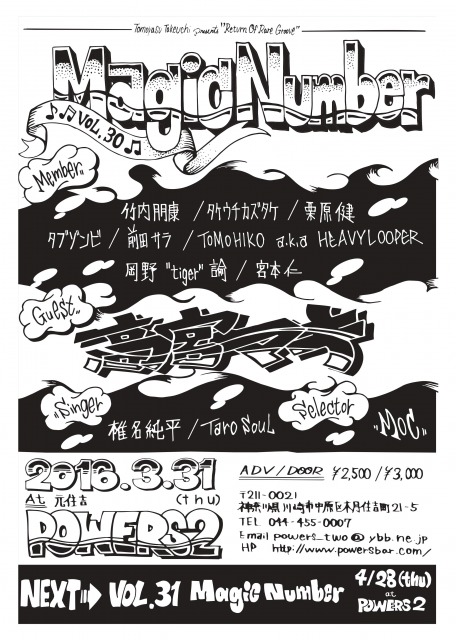 Tomoyasu Takeuchi presents "Return Of Rare Groove"
Magic Number
♪.♫ VOL.30 ♫
Member
竹内朋康 / タケウチカズタケ / 栗原健
タブゾンビ / 前田サラ / TOMOHIKO a.k.a HEAVYLOOPER
岡野 "tiger" 諭 / 宮本仁
Guest
Singer
椎名純平 / Taro Soul
Selector
"MOC"
2016.3.31
At 元住吉 (thu)
POWERS2
ADV/DOOR ¥2,500/¥3,000
〒211-0021
神奈川県川崎市中原区木月住吉町21-5
TEL 044-455-0007
Email powers_two@ybb.ne.jp
HP http://www.powersbar.com/
NEXT⇒ VOL.31 Magic Number 4/28(thu)
at
POWERS2